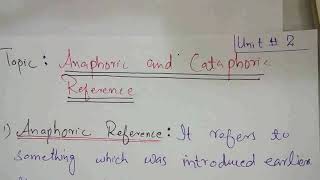 Unit # 2
Topic: Anaphoric and Cataphoric
Reference
1) Anaphoric Reference: It refers to
something which was introduced earlier